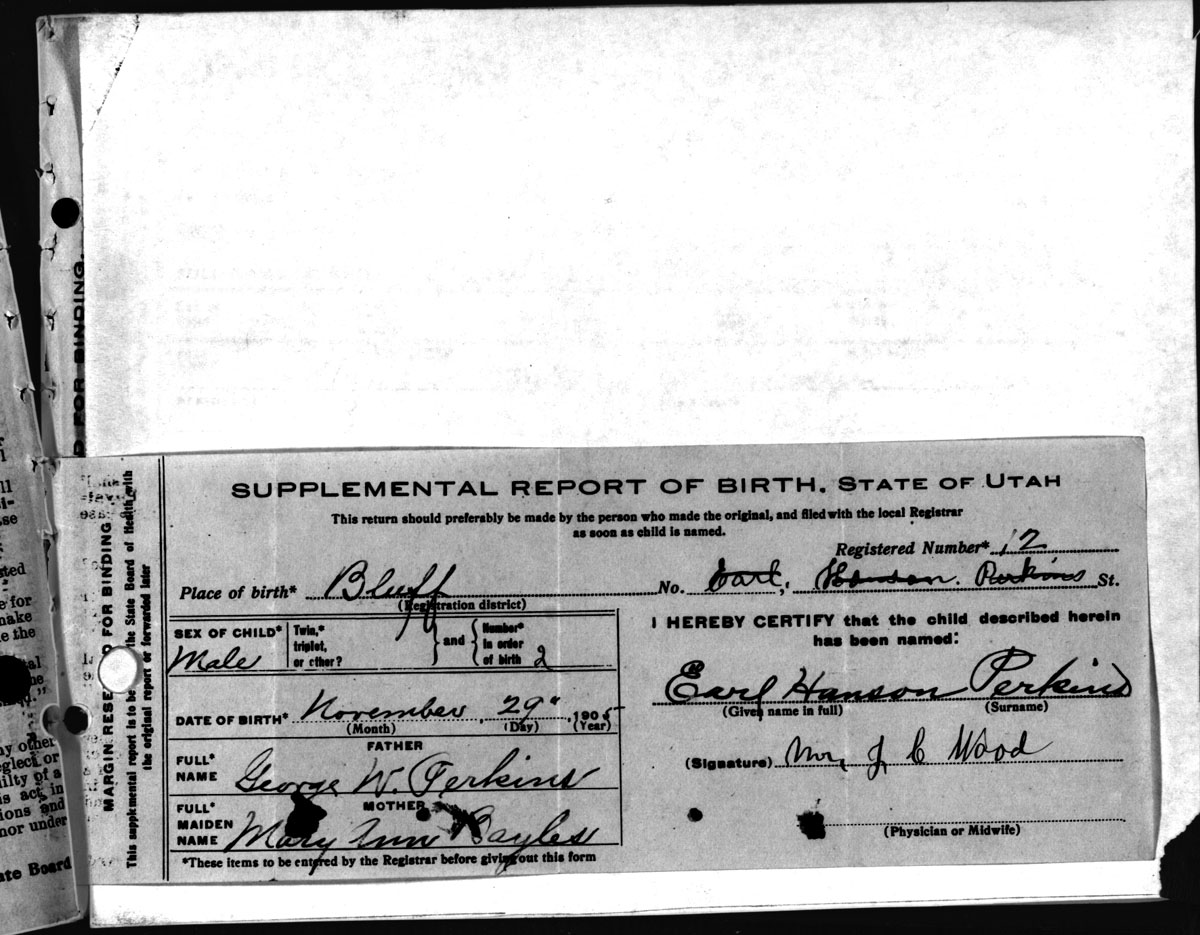 SUPPLEMENTAL REPORT OF BIRTH. STATE OF UTAH
This return should preferably be made by the person who made the original, and filed with the local Registrar
as soon as child is named.
Registered Number* 12
Place of birth* Bluff No. Earl, Hanson. Perkins St.
(Registration district)
SEX OF CHILD* Male
Twin,*
triplet,
or other?
and
Number*
in order
of birth 2
DATE OF BIRTH* November, 29", 1905
(Month) (Day) (Year)
FATHER
FULL*
NAME George W. Perkins
MOTHER
FULL*
MAIDEN
NAME Mary Ann Bayles
*These items to be entered by the Registrar before giving out this form
I HEREBY CERTIFY that the child described herein
has been named:
Earl Hanson Perkins
(Given name in full) (Surname)
(Signature) J C Wood
(Physician or Midwife)
MARGIN RESE D FOR BINDING
This supplemental report is to be the State Board of Health with
the original report or forwarded later
D FOR BINDING.
ll
se
for
make
e the
ny other
neglect or
ilty of a
s act in
ions and
nor under
ate Board